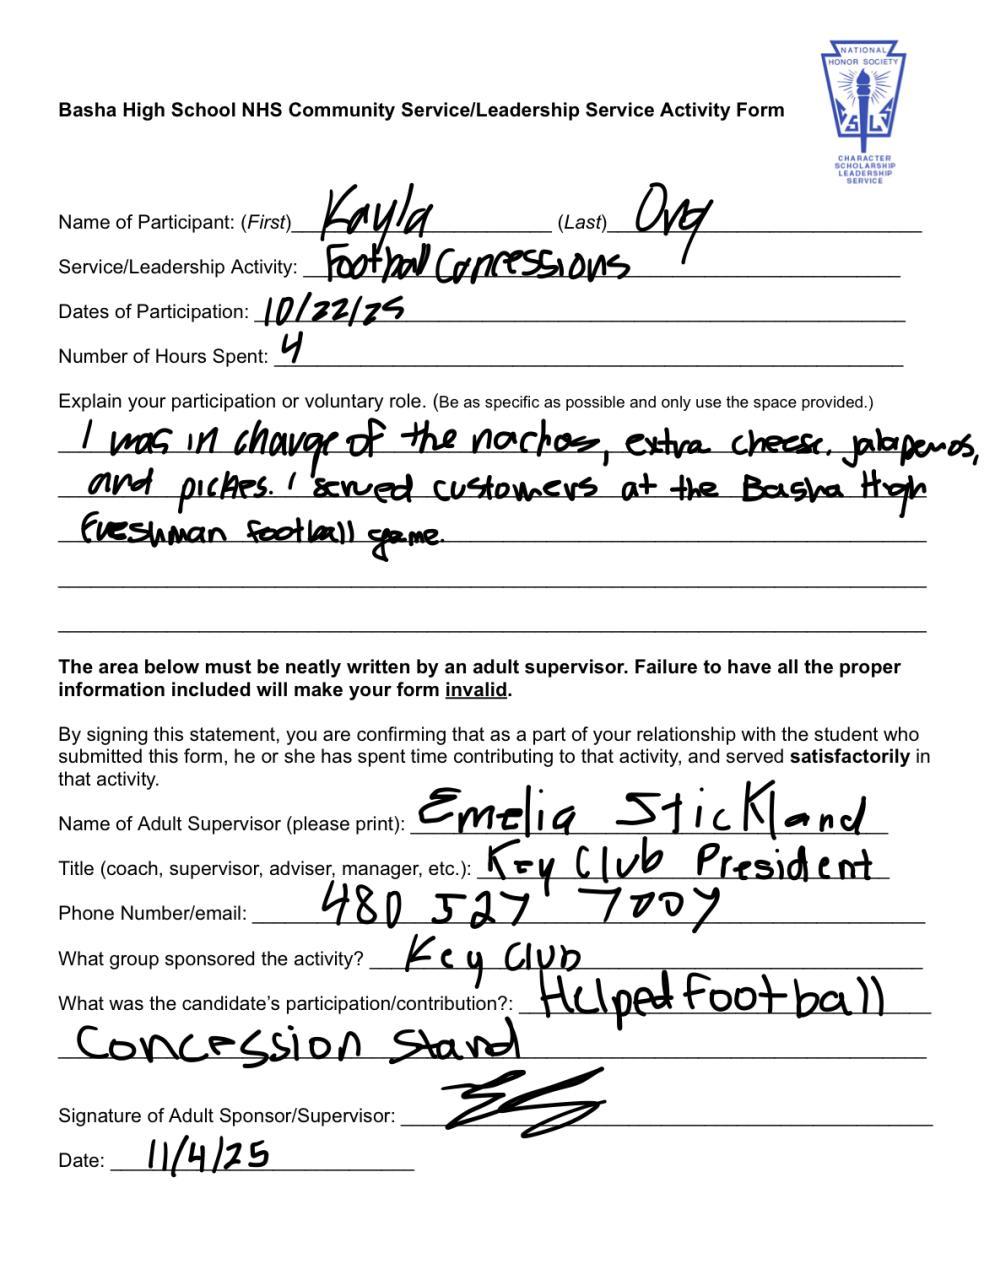 NATIONAL
HONOR SOCIETY
CHARACTER
SCHOLARSHIP
LEADERSHIP
SERVICE
Basha High School NHS Community Service/Leadership Service Activity Form
Name of Participant: (First) Kayla (Last) Ong
Service/Leadership Activity: Football Concessions
Dates of Participation: 10/22/25
Number of Hours Spent: 4
Explain your participation or voluntary role. (Be as specific as possible and only use the space provided.)
I was in charge of the nachos, extra cheese, jalapenos,
and pickles. I served customers at the Basha High
Freshman football game.
The area below must be neatly written by an adult supervisor. Failure to have all the proper
information included will make your form invalid.
By signing this statement, you are confirming that as a part of your relationship with the student who
submitted this form, he or she has spent time contributing to that activity, and served satisfactorily in
that activity.
Name of Adult Supervisor (please print): Emelia Stickland
Title (coach, supervisor, adviser, manager, etc.): Key Club President
Phone Number/email: 480 527 7007
What group sponsored the activity? Key Club
What was the candidate's participation/contribution?: Helped Football
Concession Stand
Signature of Adult Sponsor/Supervisor:
Date: 11/4/25